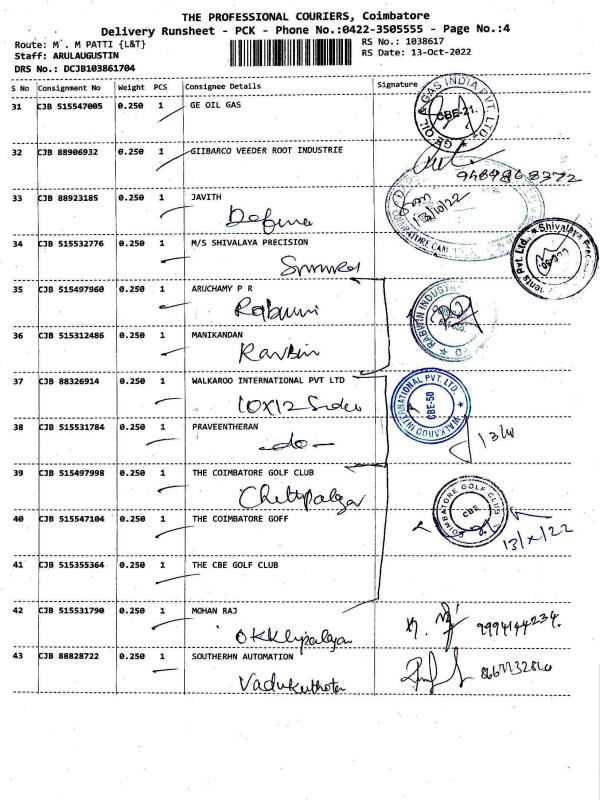 THE PROFESSIONAL COURIERS, Coimbatore
Delivery Runsheet - PCK - Phone No.:0422-3505555 - Page No.:4
Route: M . M PATTI {L&T}
RS No.: 1038617
Staff: ARULAUGUSTIN
RS Date: 13-Oct-2022
DRS No.: DCJB103861704
S No Consignment No Weight PCS Consignee Details Signature
31 CJB 515547005 0.250 1 GE OIL GAS
GE OIL & GAS INDIA PVT. LTD. CBE-21.
32 CJB 88906932 0.250 1 GIIBARCO VEEDER ROOT INDUSTRIE
9489868372
33 CJB 88923185 0.250 1 JAVITH
13/10/22
34 CJB 515532776 0.250 1 M/S SHIVALAYA PRECISION
Shivalaya
35 CJB 515497960 0.250 1 ARUCHAMY P R
RABWIN INDUSTR
36 CJB 515312486 0.250 1 MANIKANDAN
37 CJB 88326914 0.250 1 WALKAROO INTERNATIONAL PVT LTD
10x12
WALKAROO INTERNATIONAL PVT. LTD. CBE-50
38 CJB 515531784 0.250 1 PRAVEENTHERAN
-do-
39 CJB 515497998 1 0.250 THE COIMBATORE GOLF CLUB
Chettipalayam
COIMBATORE GOLF CLUB CBE
40 CJB 515547104 0.250 1 THE COIMBATORE GOFF
13/x/22
41 CJB 515355364 0.250 1 THE CBE GOLF CLUB
42 CJB 515531790 0.250 1 MOHAN RAJ
9994144234.
43 CJB 88828722 0.250 1 SOUTHERHN AUTOMATION